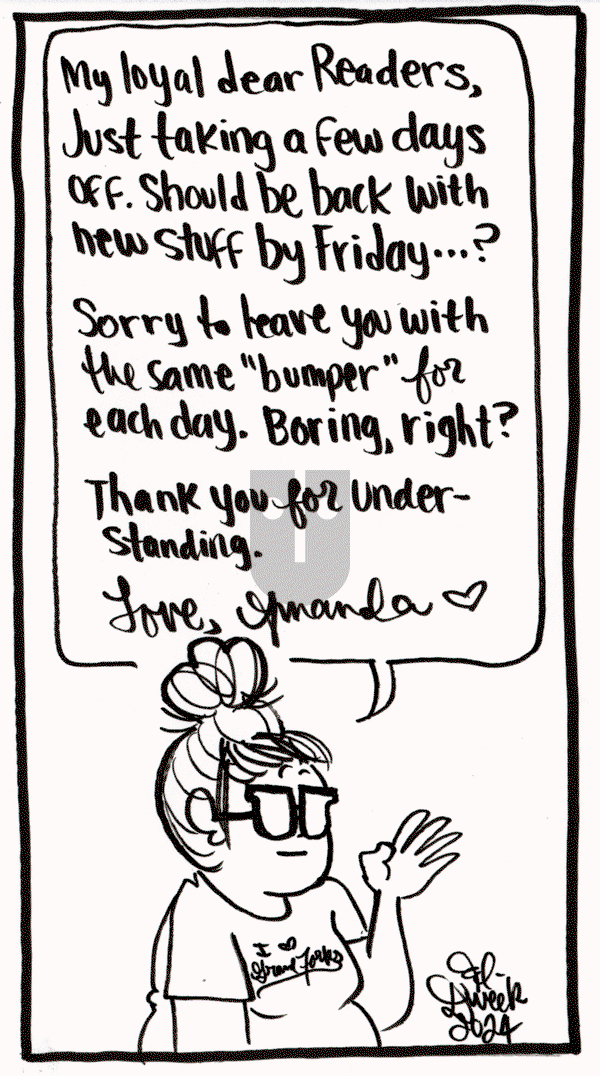 My loyal dear Readers,
Just taking a few days
off. Should be back with
new stuff by Friday...?
Sorry to leave you with
the same "bumper" for
each day. Boring, right?
Thank you for under-
standing.
Love, Amanda ♡
I ♡
Grand Forks
El-
Dweek
2024